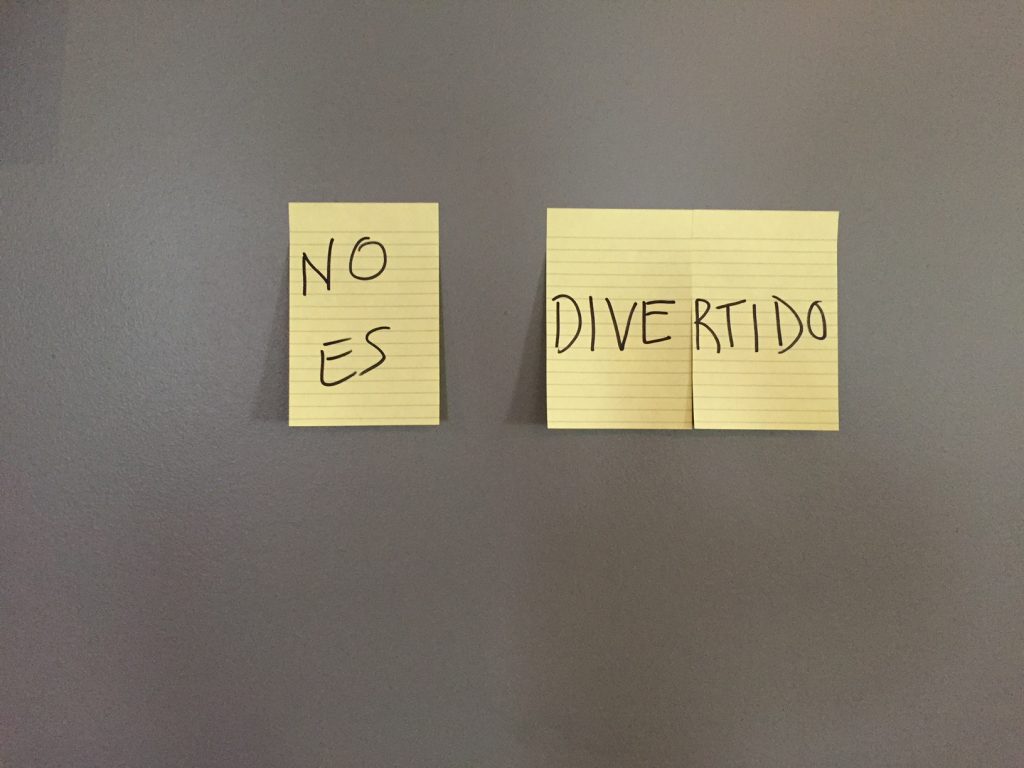 NO
ES
DIVERTIDO